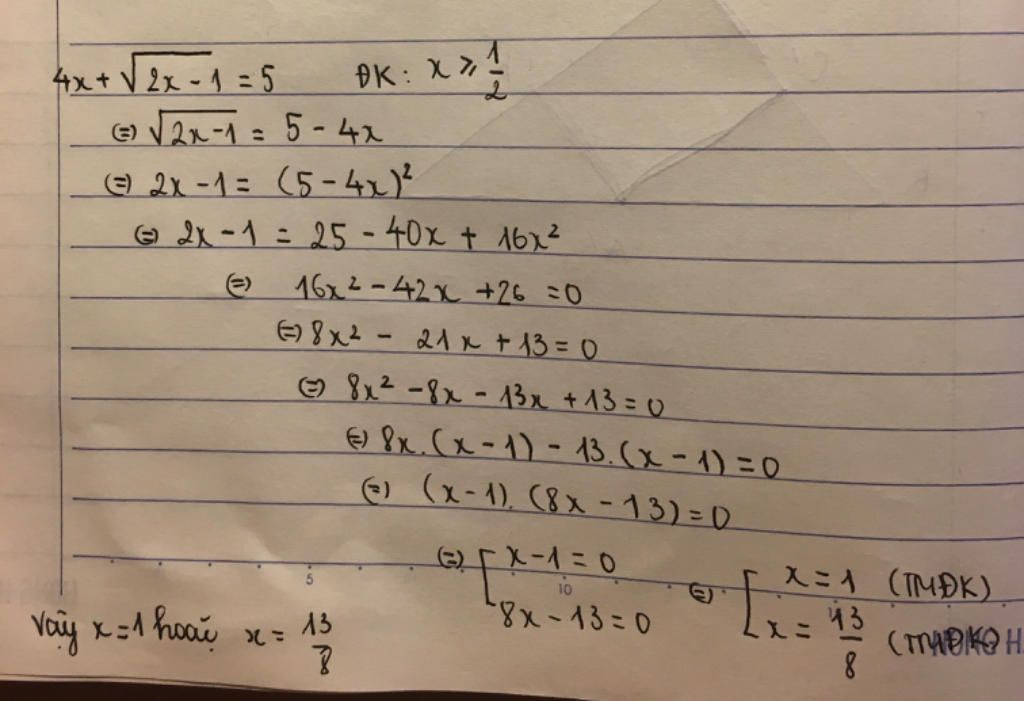 4x + √(2x - 1) = 5 ĐK: x ≥ 1/2
(=) √(2x-1) = 5 - 4x
(=) 2x - 1 = (5 - 4x)²
(=) 2x - 1 = 25 - 40x + 16x²
(=) 16x² - 42x + 26 = 0
(=) 8x² - 21x + 13 = 0
(=) 8x² - 8x - 13x + 13 = 0
(=) 8x.(x - 1) - 13.(x - 1) = 0
(=) (x - 1).(8x - 13) = 0
(=) [ x - 1 = 0 (=) [ x = 1 (TMĐK)
8x - 13 = 0 x = 13/8 (TMĐK)
5 10
Vậy x = 1 hoặc x = 13/8